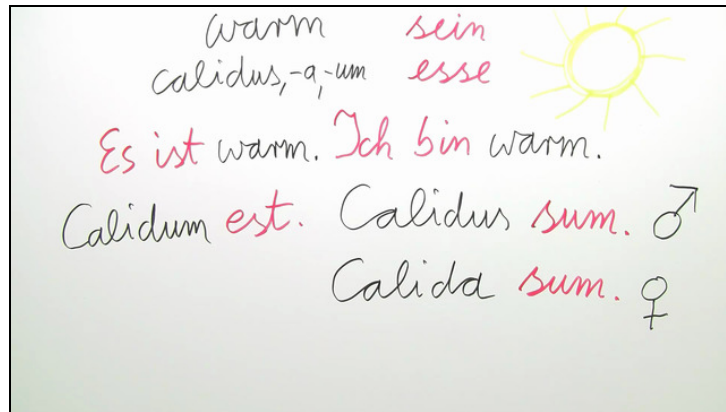 warm sein
calidus,-a,-um esse
Es ist warm. Ich bin warm.
Calidum est. Calidus sum. ♂
Calida sum. ♀